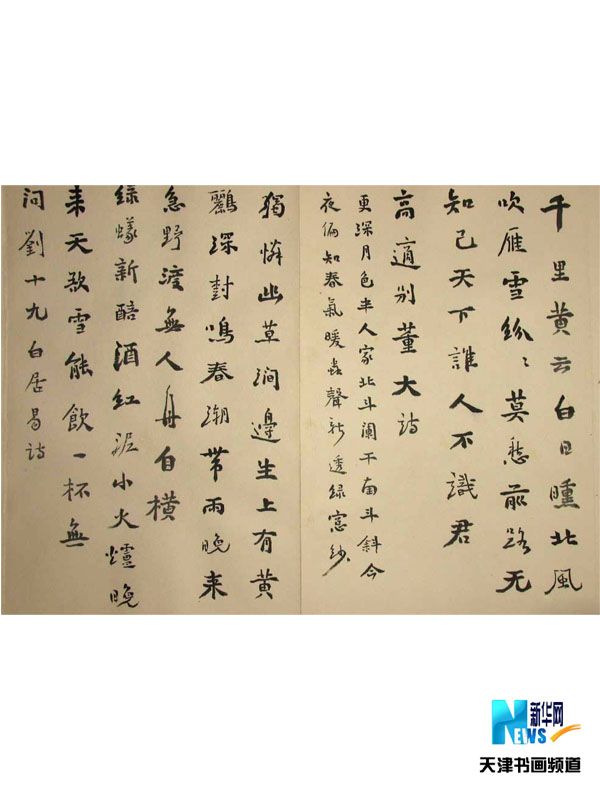 千里黄云白日曛北風
吹雁雪紛〻莫愁前路无
知己天下誰人不識君
高適别董大诗
更深月色半人家北斗闌干南斗斜今
夜偏知春氣暖蟲聲新透绿窓紗
獨憐幽草澗邊生上有黄
鸝深封鳴春潮带雨晚来
急野渡無人舟自横
绿蟻新醅酒红泥小火爐晚
来天欲雪能飲一杯無
问劉十九白居易诗
新华网
NEWS
天津书画频道